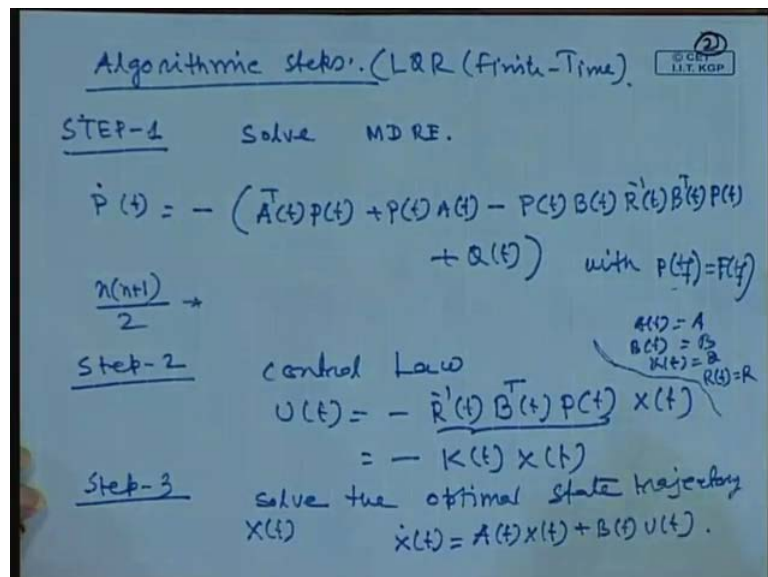 ②
Algorithmic steps:. (LQR (Finite-Time).
© CET
I.I.T. KGP
STEP-1 Solve MDRE.
Ṗ(t) = - (Aᵀ(t)P(t) + P(t)A(t) - P(t)B(t)R⁻¹(t)Bᵀ(t)P(t)
+ Q(t)) with P(t_f)=F(t_f)
n(n+1)/2 →
A(t) = A
B(t) = B
Step-2 Control Law
R(t)=R
U(t) = - R⁻¹(t) Bᵀ(t) P(t) X(t)
= - K(t) X(t)
Step-3 solve the optimal state trajectory
X(t) ẋ(t) = A(t)X(t) + B(t)U(t).